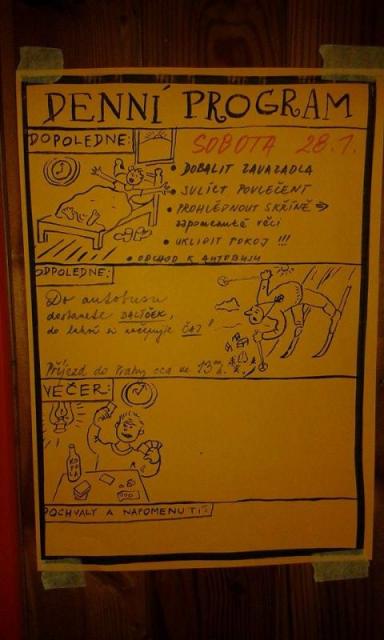 DENNÍ PROGRAM
DOPOLEDNE:
SOBOTA 28.1.
• DOBALIT ZAVAZADLA
• SVLÍCT POVLEČENÍ
• PROHLÉDNOUT SKŘÍNĚ ⇒
zapomenuté věci
• UKLIDIT POKOJ !!!
• ODCHOD K AUTOBUSU
ODPOLEDNE:
Do autobusu
dostanete BALÍČEK,
do lahví si nalijeme ČAJ!
Příjezd do Prahy cca ve 13
VEČER:
POCHVALY A NAPOMENUTÍ: